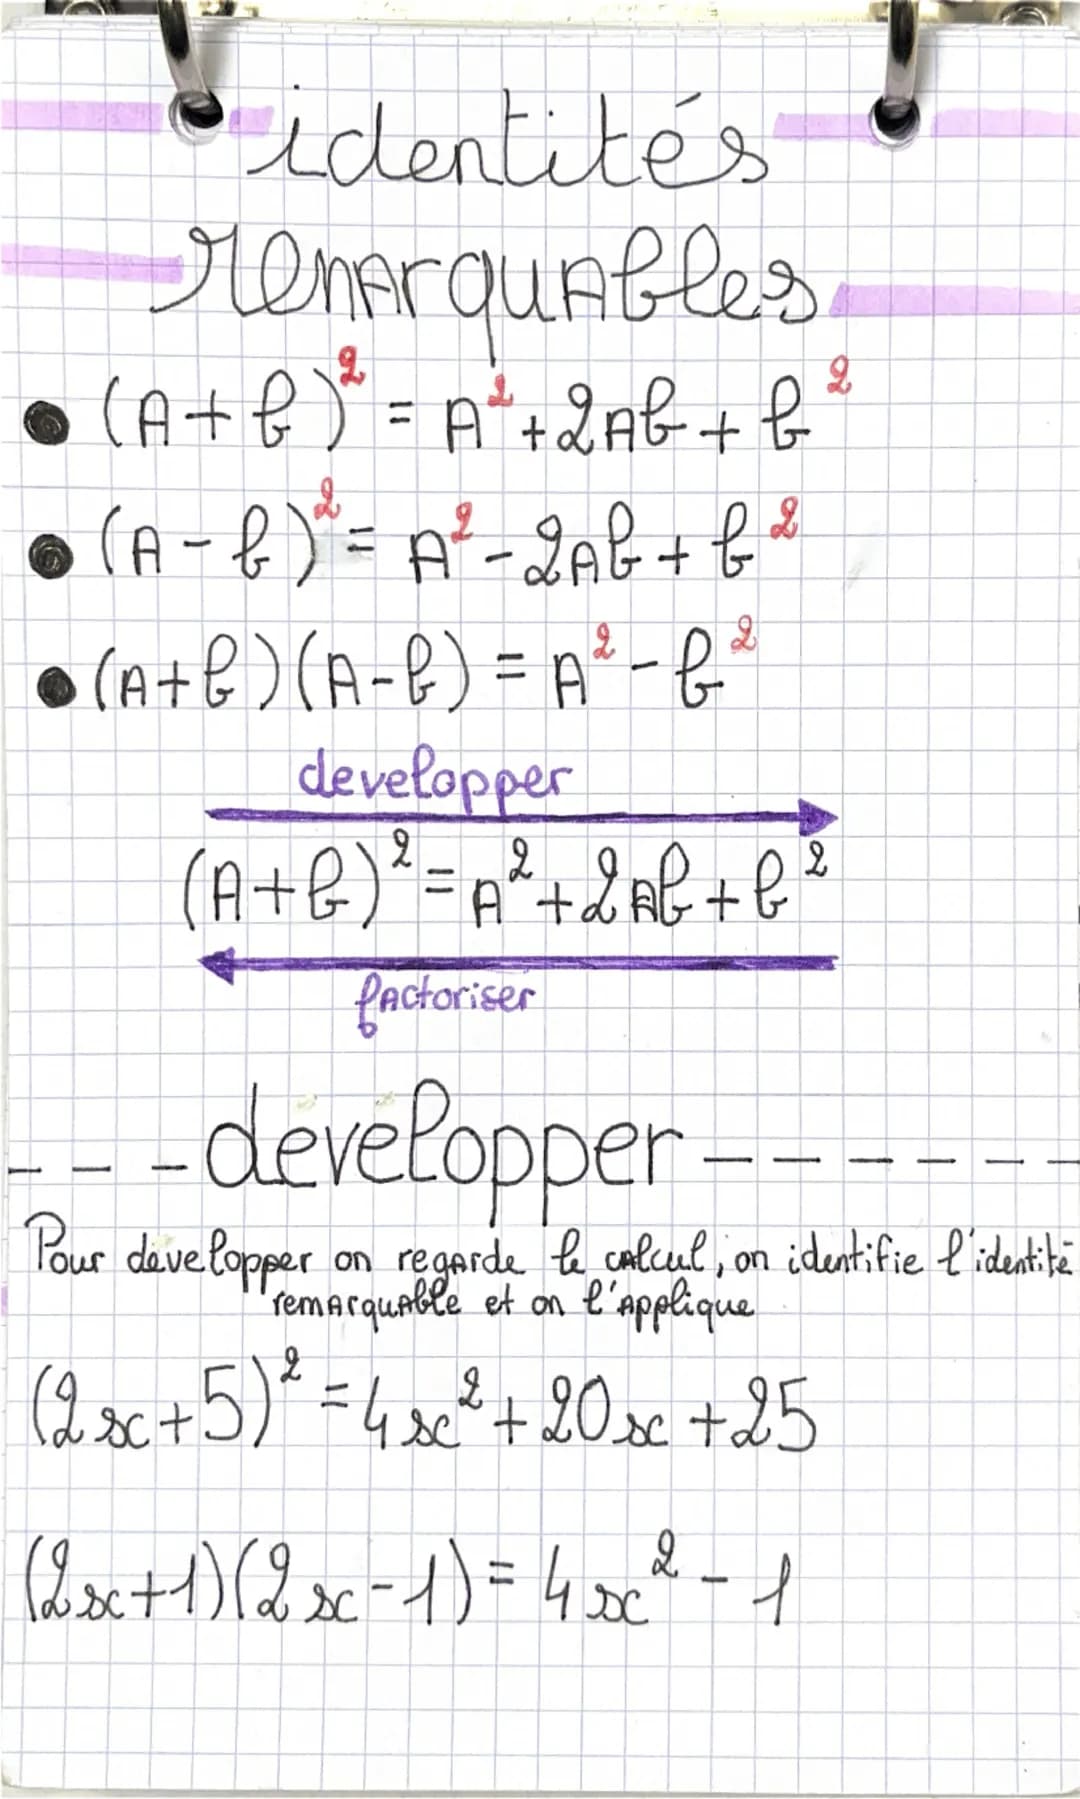 identités
remarquables
• (A+b)² = A² + 2Ab + b²
• (A-b)² = A² - 2Ab + b²
• (A+b)(A-b) = A² - b²
developper
(A+b)² = A² + 2Ab + b²
factoriser
--- développer -------
Pour développer on regarde le calcul, on identifie l'identité
remarquable et on l'applique
(2x+5)² = 4x² + 20x + 25
(2x+1)(2x-1) = 4x² - 1